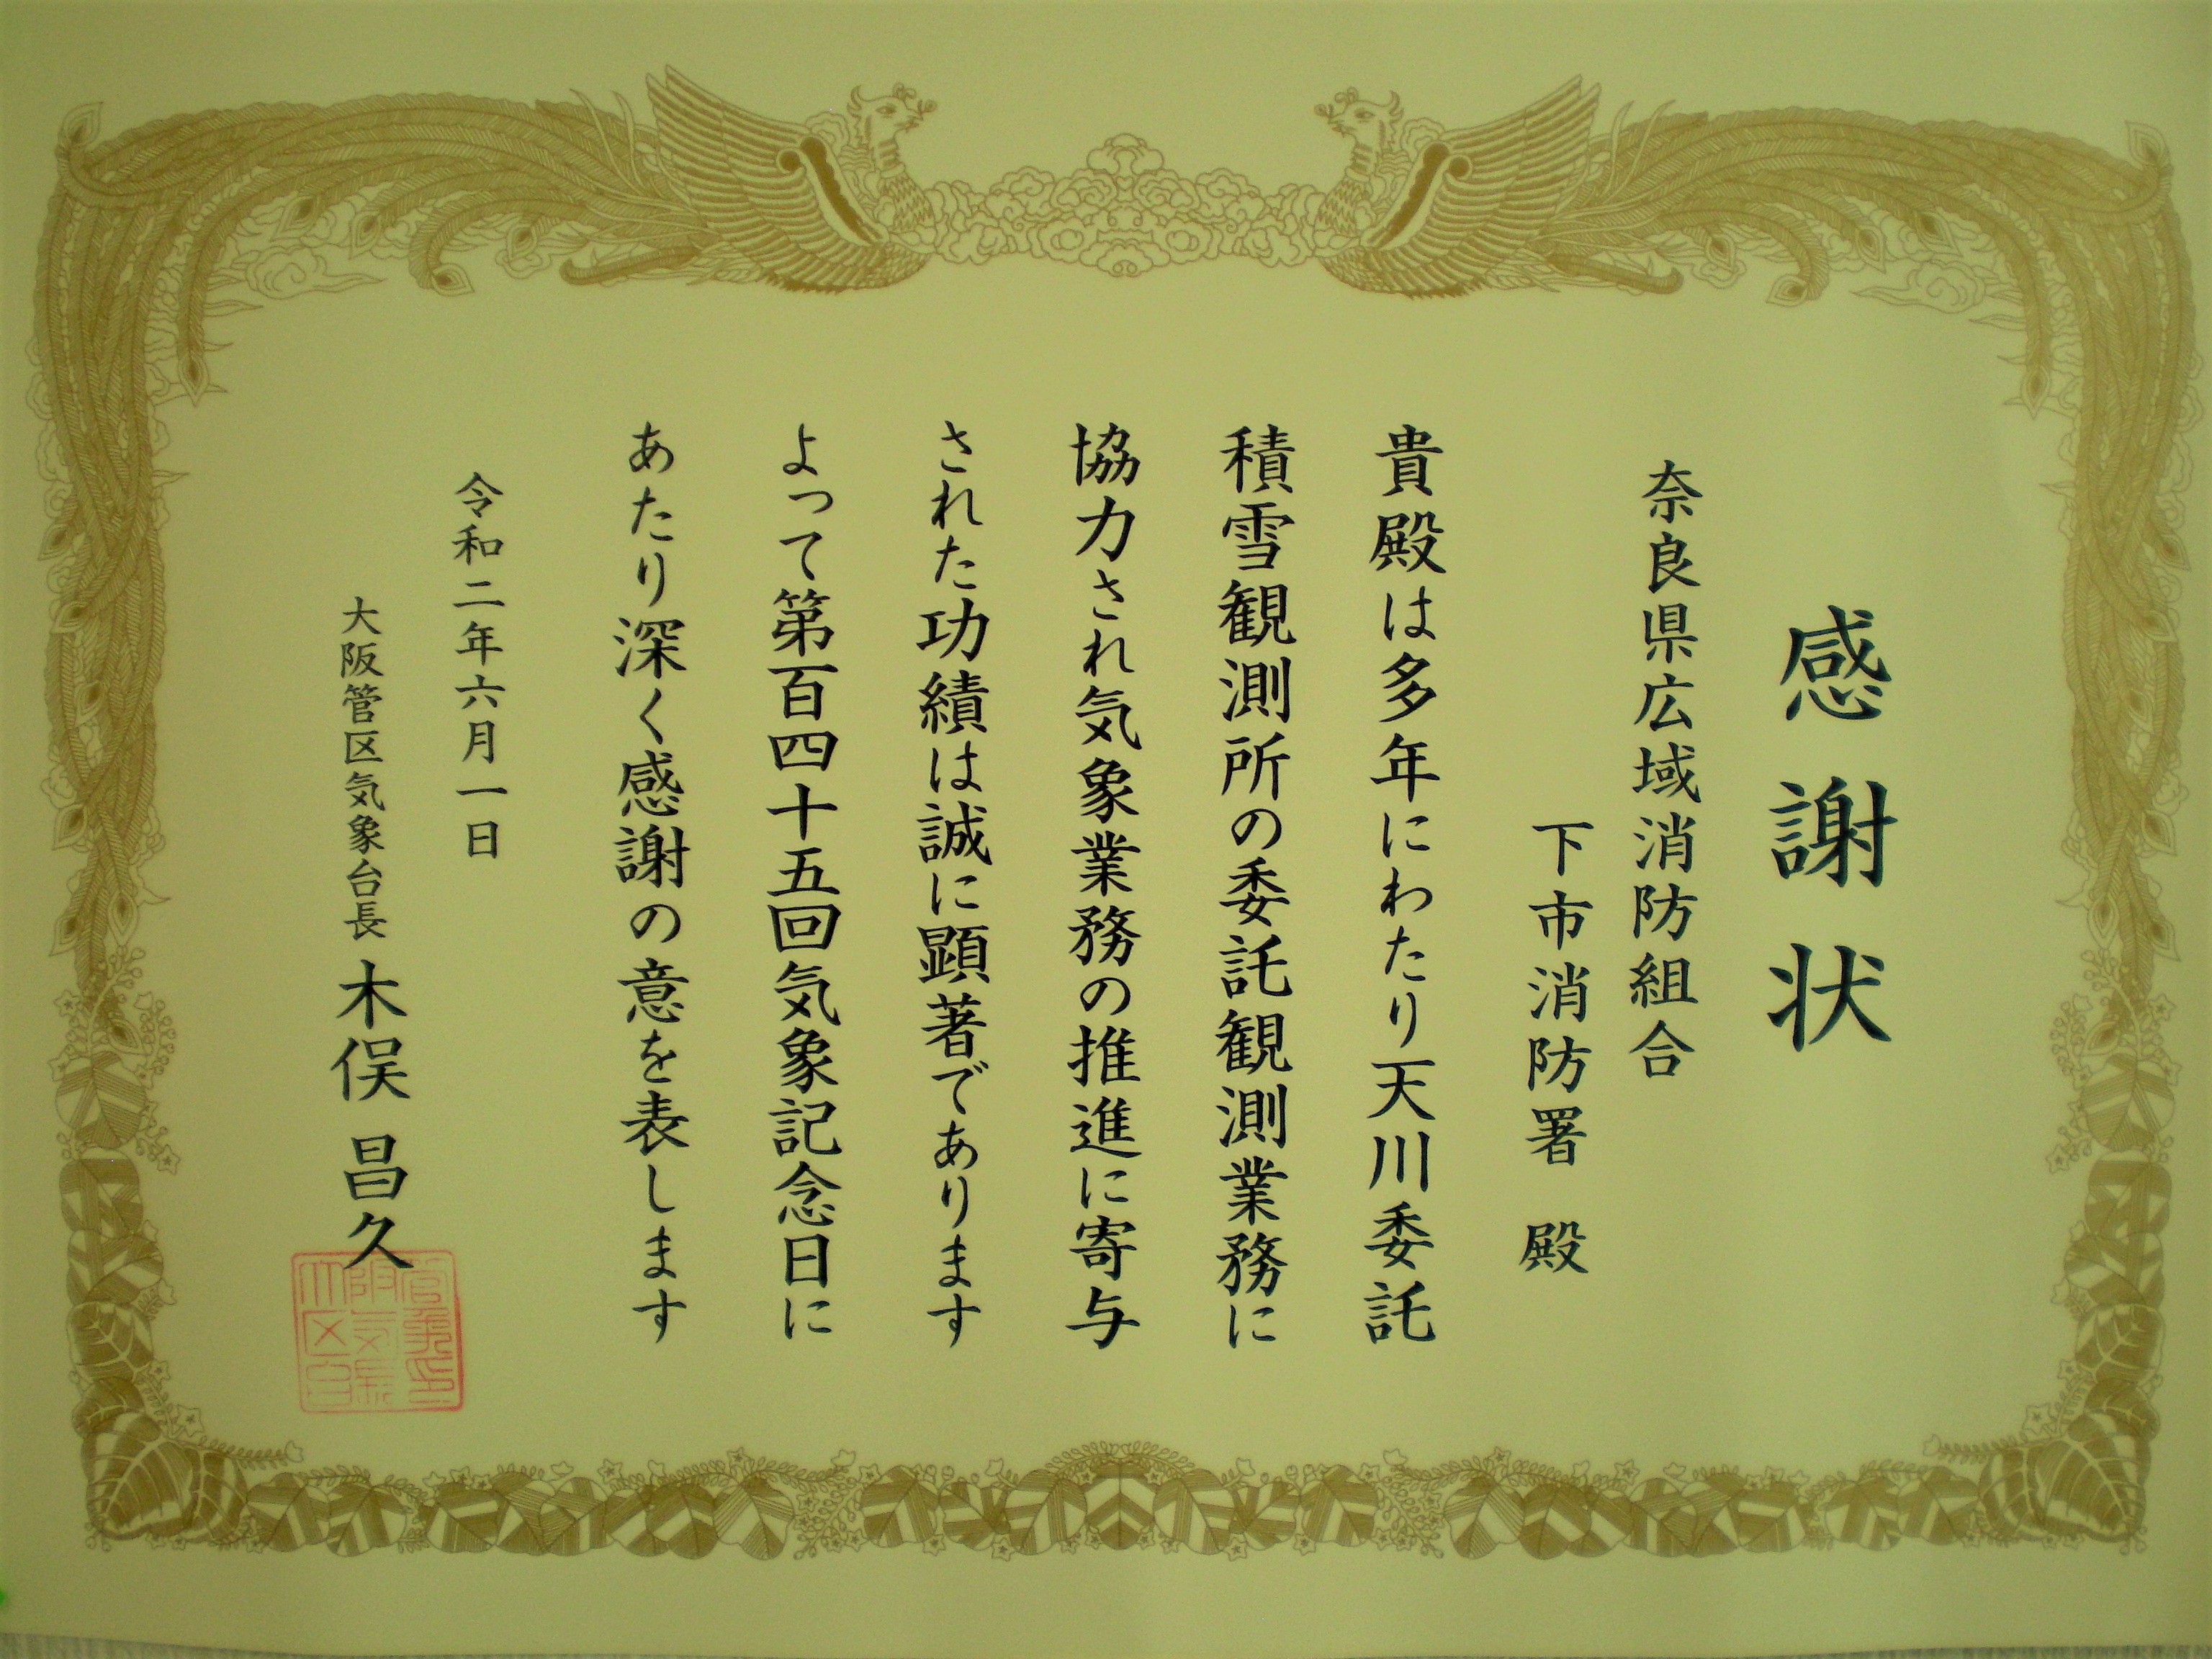 感謝状
奈良県広域消防組合
下市消防署 殿
貴殿は多年にわたり天川委託
積雪観測所の委託観測業務に
協力され気象業務の推進に寄与
された功績は誠に顕著であります
よって第百四十五回気象記念日に
あたり深く感謝の意を表します
令和二年六月一日
大阪管区気象台長 木俣昌久